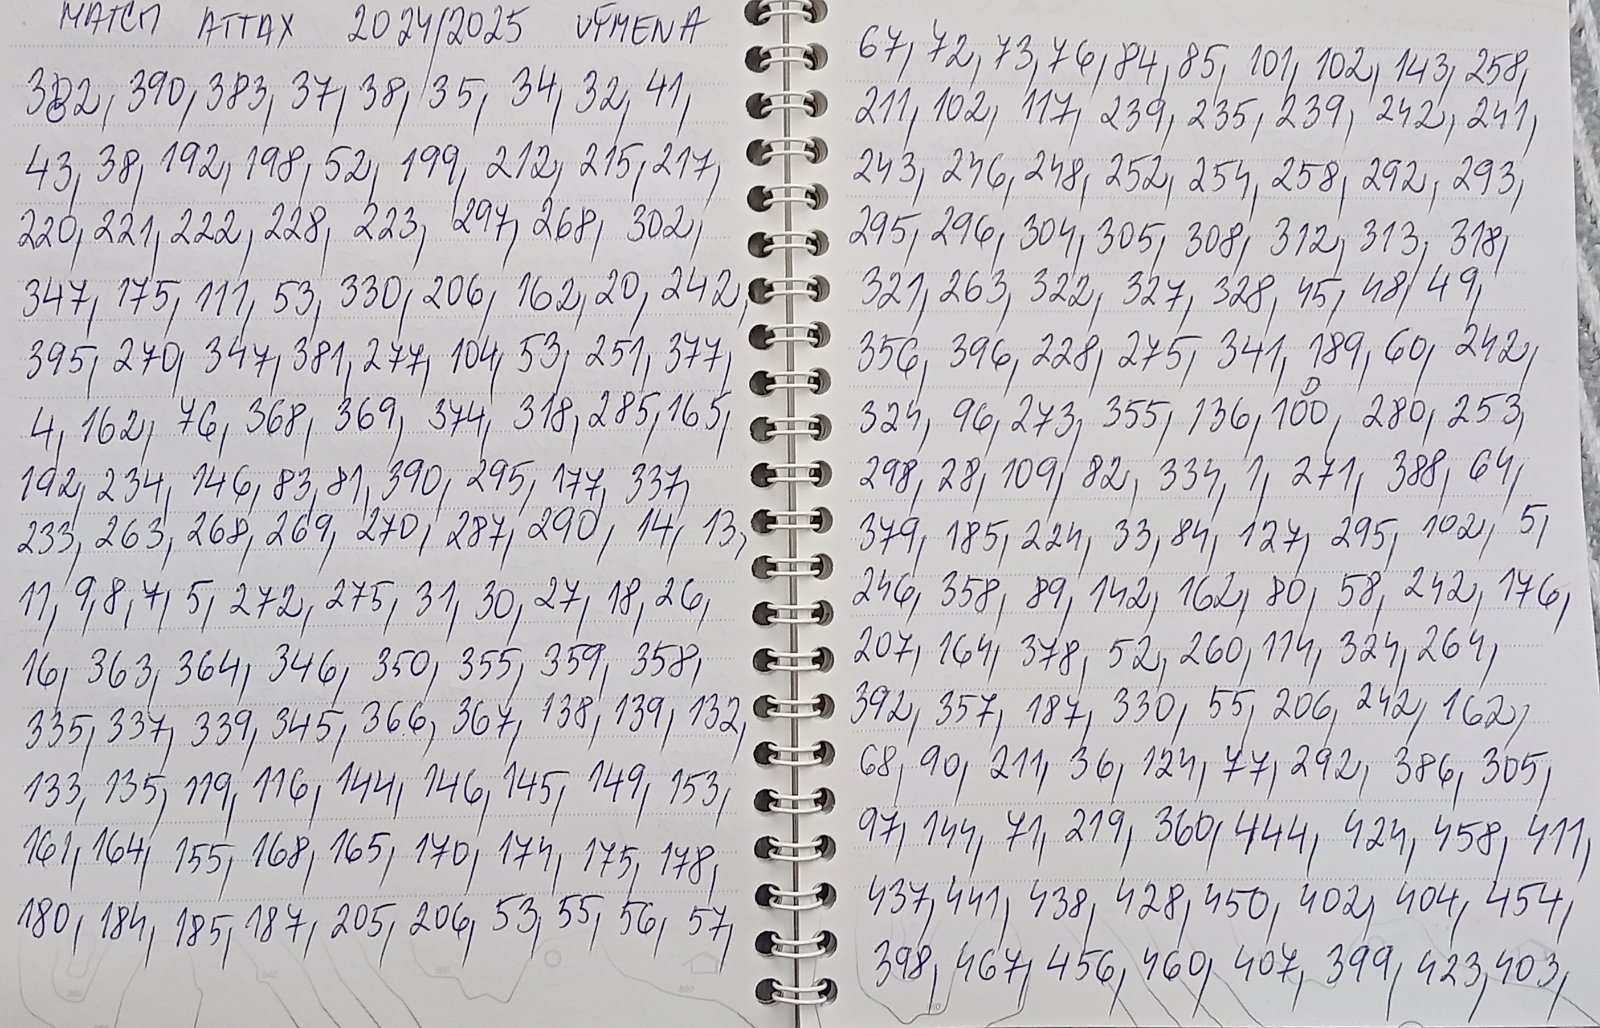 MATCH ATTAX 2024/2025 VÝMENA
382, 390, 383, 37, 38, 35, 34, 32, 41,
43, 38, 192, 198, 52, 199, 212, 215, 217,
220, 221, 222, 228, 223, 297, 268, 302,
347, 175, 111, 53, 330, 206, 162, 20, 242,
395, 270, 347, 381, 277, 104, 53, 251, 377,
4, 162, 76, 368, 369, 374, 318, 285, 165,
192, 234, 146, 83, 81, 390, 295, 177, 337,
233, 263, 268, 269, 270, 287, 290, 14, 13,
11, 9, 8, 7, 5, 272, 275, 31, 30, 27, 18, 26,
16, 363, 364, 346, 350, 355, 359, 358,
335, 337, 339, 345, 366, 367, 138, 139, 132,
133, 135, 119, 116, 144, 146, 145, 149, 153,
161, 164, 155, 168, 165, 170, 174, 175, 178,
180, 184, 185, 187, 205, 206, 53, 55, 56, 57,
67, 72, 73, 76, 84, 85, 101, 102, 143, 258,
211, 102, 117, 239, 235, 239, 242, 241,
243, 246, 248, 252, 254, 258, 292, 293,
295, 296, 304, 305, 308, 312, 313, 318,
321, 263, 322, 327, 328, 45, 48, 49,
356, 396, 228, 275, 341, 189, 60, 242,
324, 96, 273, 355, 136, 100, 280, 253,
298, 28, 109, 82, 334, 1, 271, 388, 64,
379, 185, 224, 33, 84, 127, 295, 102, 5,
246, 358, 89, 142, 162, 80, 58, 242, 176,
207, 164, 378, 52, 260, 114, 324, 264,
392, 357, 187, 330, 55, 206, 242, 162,
68, 90, 211, 36, 124, 77, 292, 386, 305,
97, 144, 71, 219, 360, 444, 424, 458, 411,
437, 441, 438, 428, 450, 402, 404, 454,
398, 467, 456, 460, 407, 399, 423, 403,